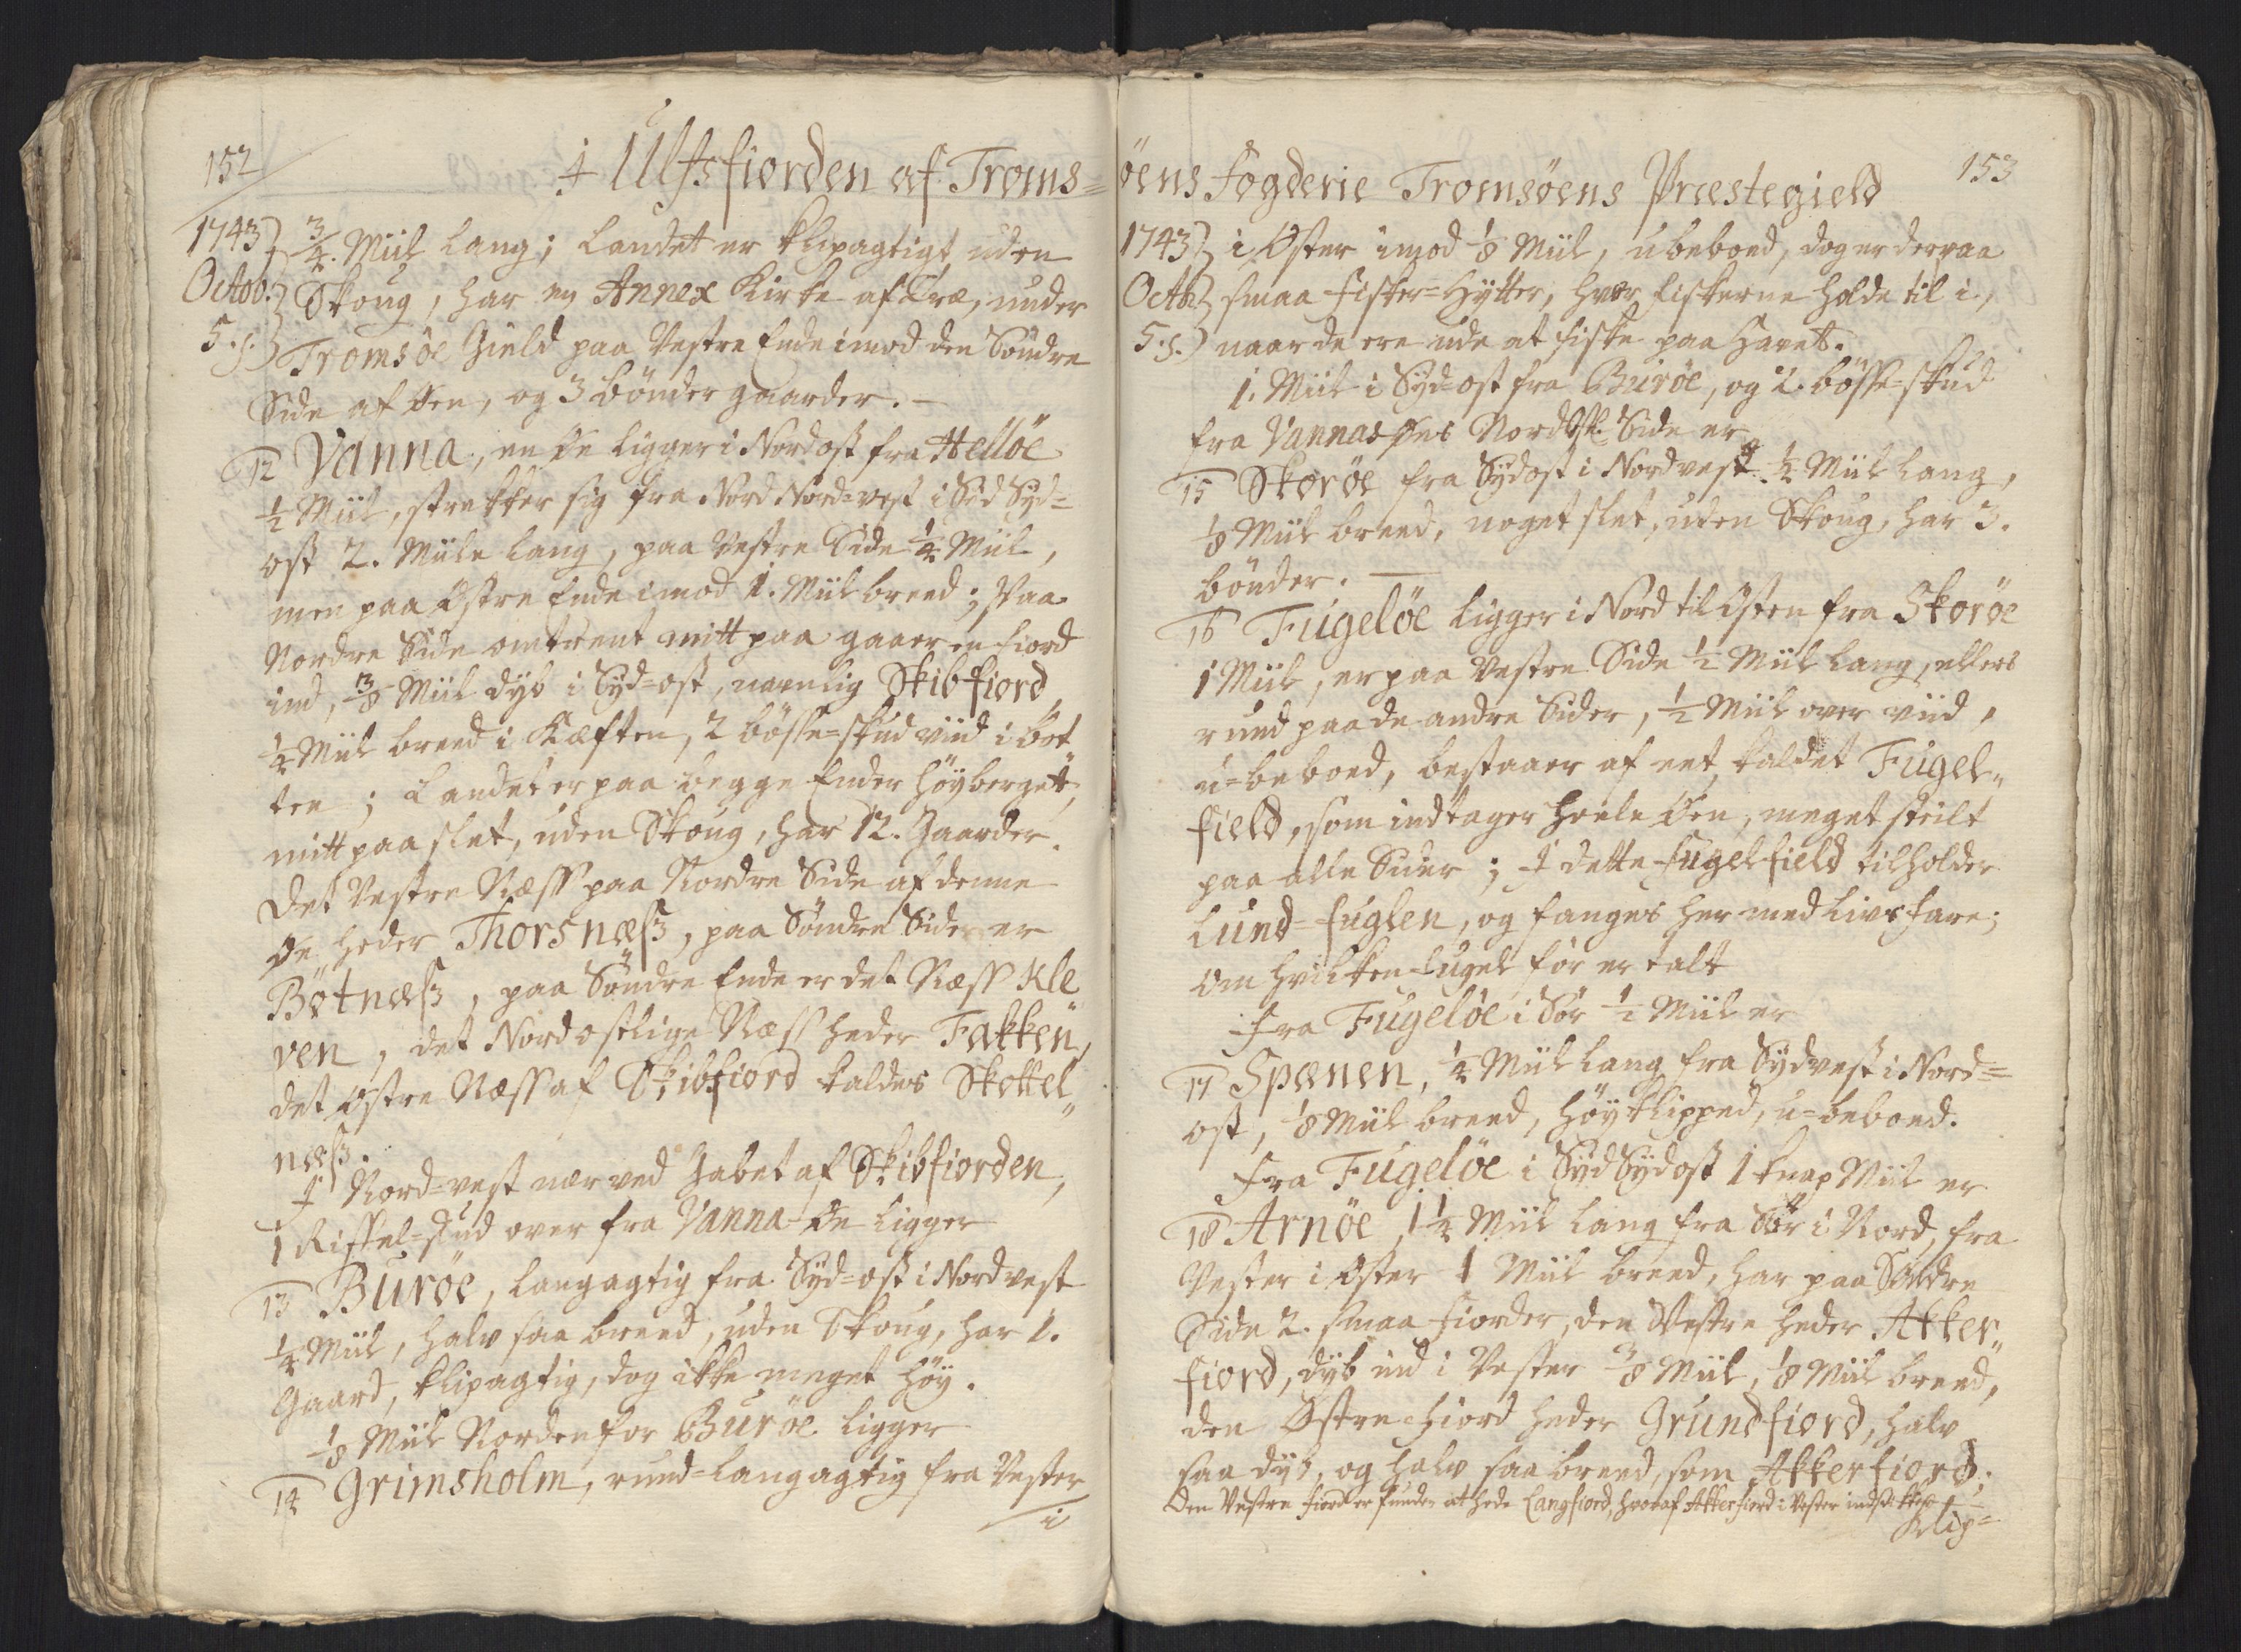 152
I Ulfsfiorden af Troms=
1743 } 3/4. Miil lang; Landet er klipagtigt uden
Octob. } Skoug, har en Annex Kirke af Træ, under
5. s. } Tromsöe Gield paa Vestre Ende imod den Söndre
Side af Øen, og 3 bönder gaarder. —
12 Vanna, en Øe ligger i Nordost fra Hellöe
1/2 Miil, strekker sig fra Nord Nord=vest i Sÿd Sÿd=
ost 2. Miile lang, paa Vestre Side 1/4 Miil,
men paa Østre Ende imod 1. Miil breed; Paa
Nordre Side omtrent mitt paa gaaer en Fiord
ind, 3/8 Miil dÿb i Sÿd=ost, navnlig Skibfiord,
1/4 Miil breed i Kæften, 2 bösse=skud viid i bot
ten; Landet er paa begge Ender höÿberget,
mitt paa slet, uden Skoug, har 12. Gaarder.
Det Vestre Næss paa Nordre Side af denne
Øe heder Thorsnæss, paa Söndre Side er
Bötnæss, paa Söndre Ende er det Næss Kle
ven, det Nordostlige Næss heder Fakken,
det Østre Næss af Skibfiord kaldes Skottel„
næss.
I Nord=vest nær ved Gabet af Skibfiorden,
1 Riffel=skud over fra Vanna Øe ligger
13 Buröe, langagtig fra Sÿd=ost i Nordvest
1/4 Miil, halv saa breed, uden Skoug, har 1.
Gaard, klipagtig, dog ikke meget höÿ.
1/8 Miil Norden for Buröe ligger
14 Grimsholm, rund=langagtig fra Vester
i
153
öens Fogderie Tromsöens Præstegield
1743 } i Øster imod 1/8 Miil, ubeboed, dog er derpaa
Octb. } smaa Fisker=Hÿtter, hvor Fiskerne holde til i,
5. s. } naar de ere ude at fiske paa Havet.
1. Miil i Sÿd=ost fra Buröe, og 2. bösse=skud
fra Vannas Øes Nordöstl. Side er
15 Skoröe fra Sÿdost i Nordvest 1/4 Miil lang,
1/8 Miil breed, noget slet, uden Skoug, har 3.
bönder. —
16 Fugelöe ligger i Nord til Østen fra Skoröe
1 Miil, er paa Vestre Side 1/2 Miil lang, ellers
rund paa de andre Sider, 1/2 Miil over viid,
u=beboed, bestaaer af eet, kaldet Fugel„
field, som indtager heele Øen, meget steilt
paa alle Sider; I dette Fugelfield tilholder
Lund=fuglen, og fanges her med Livs fare;
om hvilken Fugel för er talt
Fra Fugelöe i Sör 1/2 Miil er
17 Spænen, 1/4 Miil lang fra Sÿdvest i Nord=
ost, 1/8 Miil breed, höÿ klipped, u=beboed.
Fra Fugelöe i Sÿd Sÿdost 1 knap Miil er
18 Arnöe, 1 1/4 Miil lang fra Sör i Nord, fra
Vester i Øster 1 Miil breed, har paa Söndre
Side 2. smaa Fiorder, den Vestre heder Akker„
fiord, dÿb ind i Vester 3/8 Miil, 1/8 Miil breed,
den Østre Fiord heder Grundfiord, halv
saa dÿb, og halv saa breed, som Akkerfiord;
Den Vestre Fiord er funden at hede Langfiord, hvoraf Akkerfiord i Vester indstikker
Klip=